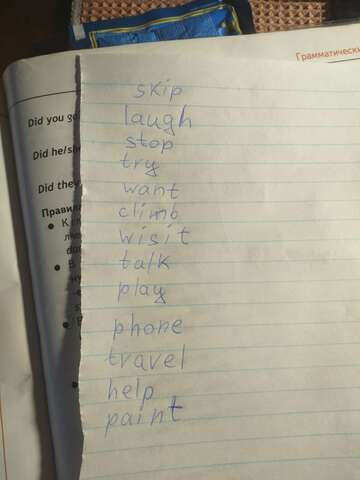 Грамматически
skip
laugh
Did you go
stop
Did he/she
try
want
Did they
climb
Правил
wisit
talk
play
phone
travel
help
paint